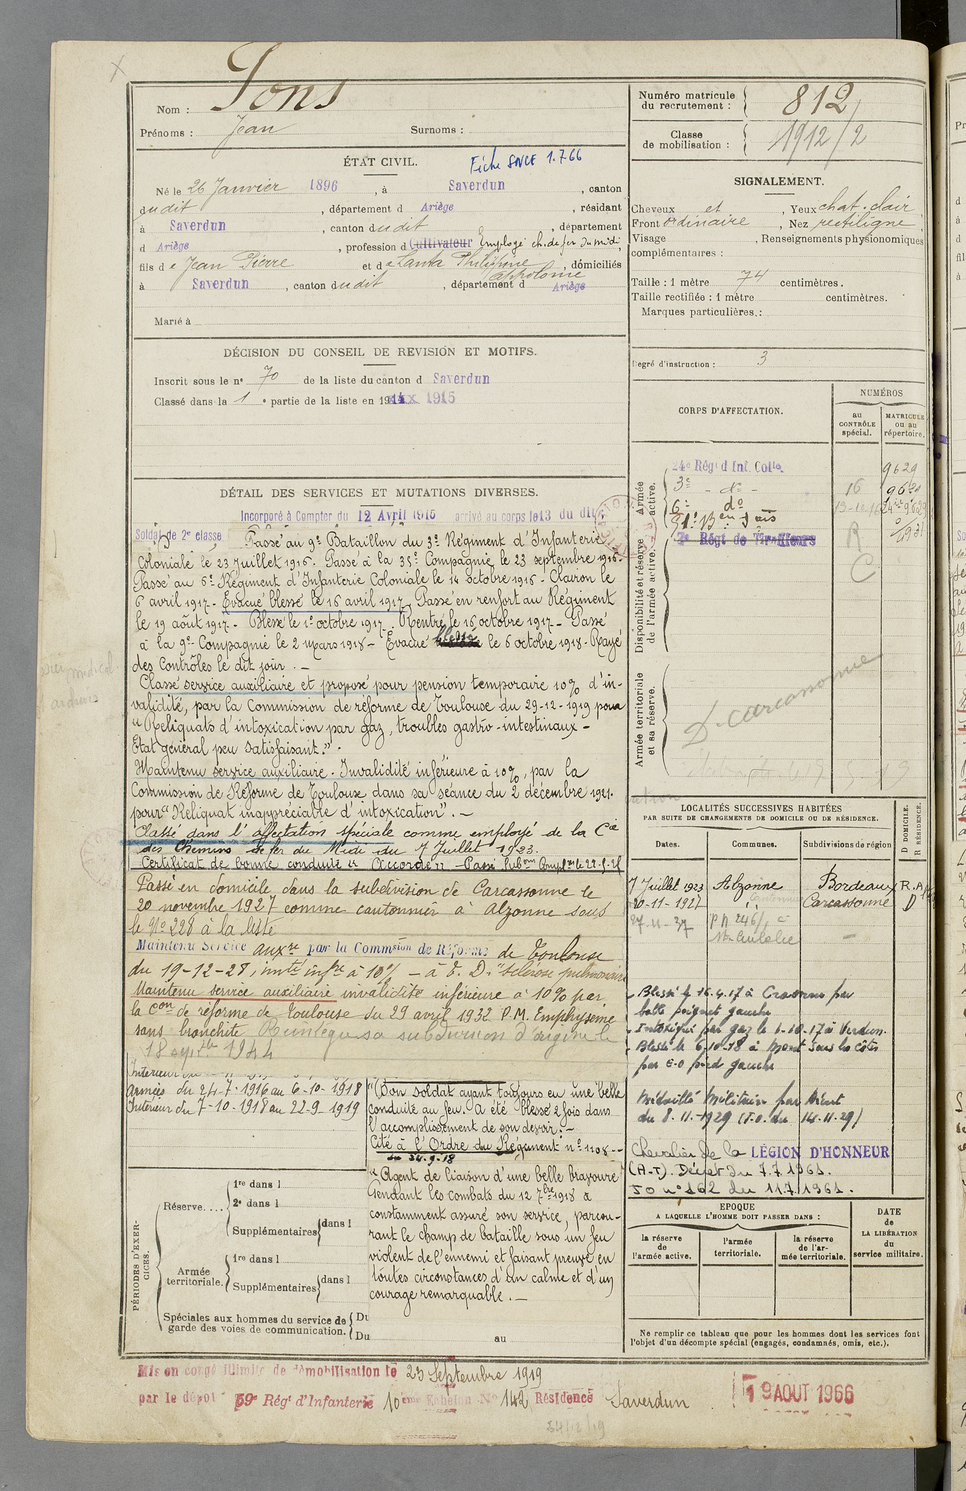 Nom : Sons
Prénoms : Jean Surnoms :
Numéro matricule du recrutement : 812
Classe de mobilisation : 1912/2
ÉTAT CIVIL.
Fiche SNCF 1.7.66
Né le 26 Janvier 1896, à Saverdun, canton
dudit, département d Ariège, résidant
à Saverdun, canton dudit, département
d Ariège, profession d Cultivateur Employé ch. de fer du midi,
fils de Jean Pierre et de Philippine, domiciliés
Appolonie
à Saverdun, canton dudit, département d Ariège
Marié à
SIGNALEMENT.
Cheveux et, Yeux chat. clair
Front ordinaire, Nez rectiligne
Visage, Renseignements physionomiques
complémentaires :
Taille : 1 mètre 74 centimètres.
Taille rectifiée : 1 mètre centimètres.
Marques particulières :
Degré d'instruction : 3
DÉCISION DU CONSEIL DE REVISION ET MOTIFS.
Inscrit sous le n° 70 de la liste du canton d Saverdun
Classé dans la 1e partie de la liste en 1915
CORPS D'AFFECTATION.
NUMÉROS
au CONTRÔLE spécial.
MATRICULE ou au répertoire.
Armée active.
24e Rég d Inf. Colle. 9629
3e - do - 16
6e do
Rég de Tirailleurs
R
C
Disponibilité et réserve de l'armée active.
Armée territoriale et sa réserve.
D. Carcassonne
DÉTAIL DES SERVICES ET MUTATIONS DIVERSES.
Incorporé à Compter du 12 Avril 1915 arrivé au corps le 13 du dit
Soldat de 2e classe Passé au 9e Bataillon du 3e Régiment d'Infanterie
Coloniale le 23 juillet 1916. Passé à la 35e Compagnie le 23 septembre 1916.
Passé au 6e Régiment d'Infanterie Coloniale le 14 octobre 1916. Clairon le
6 avril 1917. Evacué blessé le 16 avril 1917. Passé en renfort au Régiment
le 19 août 1917. Blessé le 1er octobre 1917. Rentré le 16 octobre 1917. Passé
à la 9e Compagnie le 2 mars 1918. Evacué blessé le 6 octobre 1918. Rayé
des Contrôles le dit jour. —
Classé service auxiliaire et proposé pour pension temporaire 10% d'in-
validité, par la Commission de réforme de Toulouse du 29-12-1919 pour
" Reliquats d'intoxication par gaz, troubles gastro-intestinaux -
Etat général peu satisfaisant." -
Maintenu service auxiliaire. Invalidité inférieure à 10%, par la
Commission de Réforme de Toulouse dans sa séance du 2 décembre 1921.
pour "Reliquat inappréciable d'intoxication". —
Classé dans l'affectation spéciale comme employé de la Cie
des Chemins de fer du Midi du 7 Juillet 1923.
Certificat de bonne conduite "Accordé"
Passé en domicile dans la subdivision de Carcassonne le
20 novembre 1927 comme cantonnier à Alzonne sous
le N° 228 à la liste
Maintenu Service auxre par la Commsion de Réforme de Toulouse
du 19-12-28, invté infre à 10% - "Sclérose pulmonaire
Maintenu service auxiliaire invalidité inférieure à 10% par
la Con de réforme de Toulouse du 29 avril 1932 P.M. Emphysème
sans bronchite Réintégré sa subdivision d'origine le
18 septbre 1944
Armées du 24-7-1916 au 6-10-1918
Intérieur du 7-10-1918 au 22-9 1919
"Bon soldat ayant toujours eu une belle
conduite au feu. A été blessé 2 fois dans
l'accomplissement de son devoir. -
Cité à l'Ordre du Régiment n° 1108 -
du 24.9.18
"Agent de liaison d'une belle bravoure
Pendant les combats du 12 7bre 1918 a
constamment assuré son service, parcou-
rant le champ de bataille sous un feu
violent de l'ennemi et faisant preuve en
toutes circonstances d'un calme et d'un
courage remarquable. —
LOCALITÉS SUCCESSIVES HABITÉES
PAR SUITE DE CHANGEMENTS DE DOMICILE OU DE RÉSIDENCE.
D DOMICILE. R RÉSIDENCE.
Dates. Communes. Subdivisions de région
7 Juillet 1923 Alzonne Bordeaux R.
20-11-1927 " Carcassonne D
27-11-37 PN 246
Blessé le 16.4.17 à Craonne par
balle poignet gauche
Intoxiqué par gaz le 1-10-17 à Verdun.
Blessé le 6-10-18 à Mont sous les côtes
par E.O pied gauche
Médaille Militaire par Décret
du 8.11.1929 (J.O. du 14.11.29)
Chevalier de la LÉGION D'HONNEUR
(A.T). Décret du 7.7.1961.
JO n° 162 du 11.7.1961.
PÉRIODES D'EXERCICES.
Réserve.... 1re dans l
2e dans l
Supplémentaires dans l
Armée territoriale. 1re dans l
Supplémentaires dans l
Spéciales aux hommes du service de garde des voies de communication. Du
Du au
EPOQUE
A LAQUELLE L'HOMME DOIT PASSER DANS :
la réserve de l'armée active.
l'armée territoriale.
la réserve de l'armée territoriale.
DATE de LA LIBÉRATION du service militaire.
Ne remplir ce tableau que pour les hommes dont les services font
l'objet d'un décompte spécial (engagés, condamnés, omis, etc.).
Mis en congé illimité de démobilisation le 23 Septembre 1919
par le dépôt 59e Régt d'Infanterie 10ème Echelon N° 142 Résidence Saverdun
19 AOUT 1966